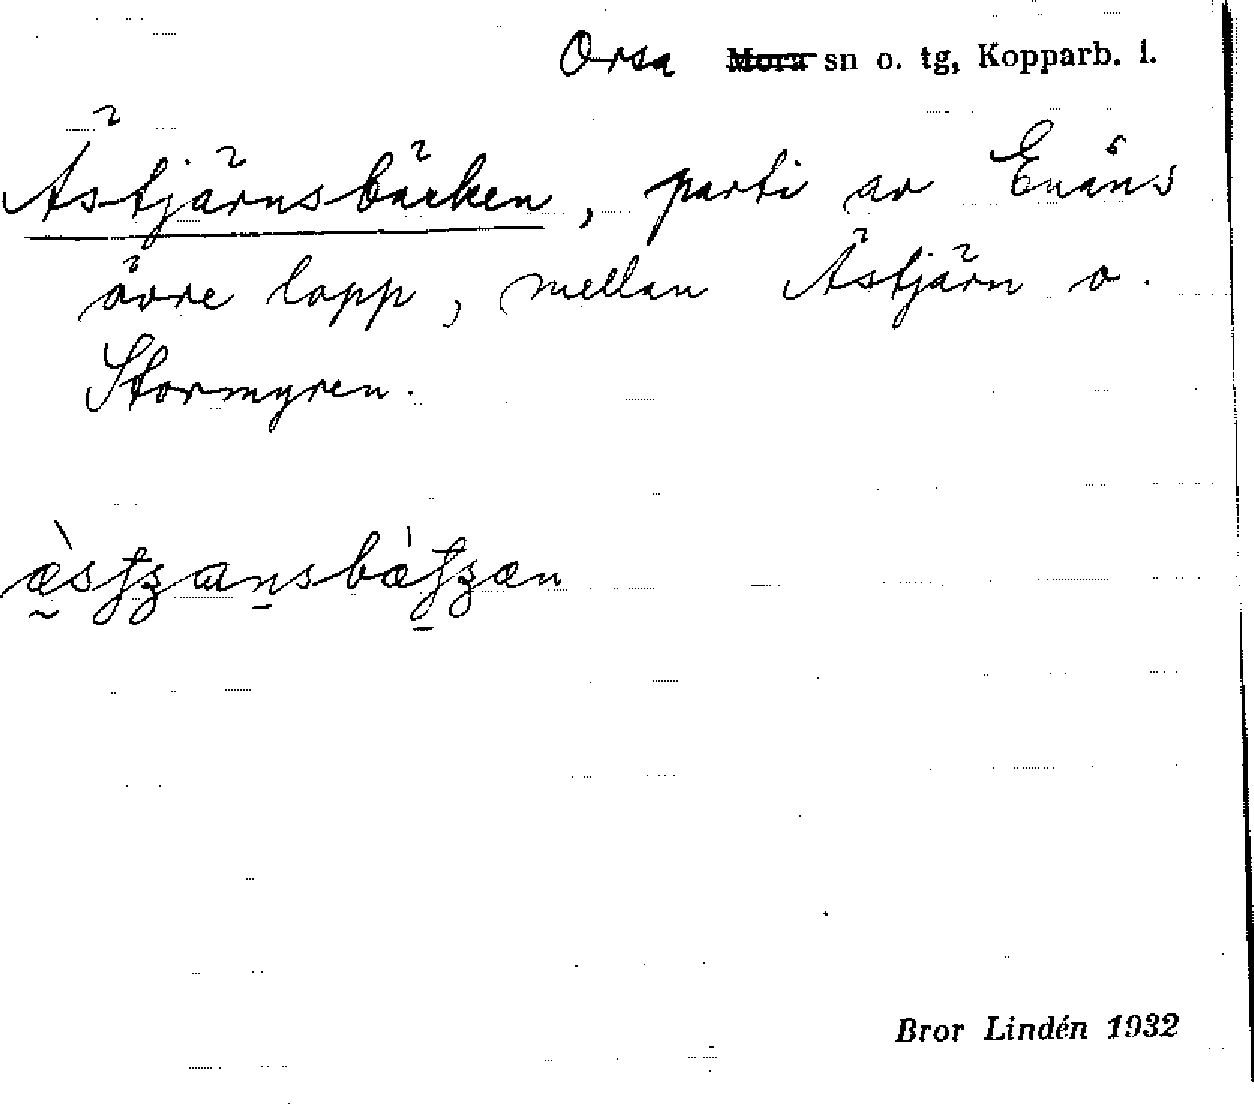 Orsa ~~Mora~~ sn o. tg, Kopparb. l.
Ästjärnsbäcken, parti av Enåns
övre lopp, mellan Ästjärn o.
Stormyren.
Bror Lindén 1932